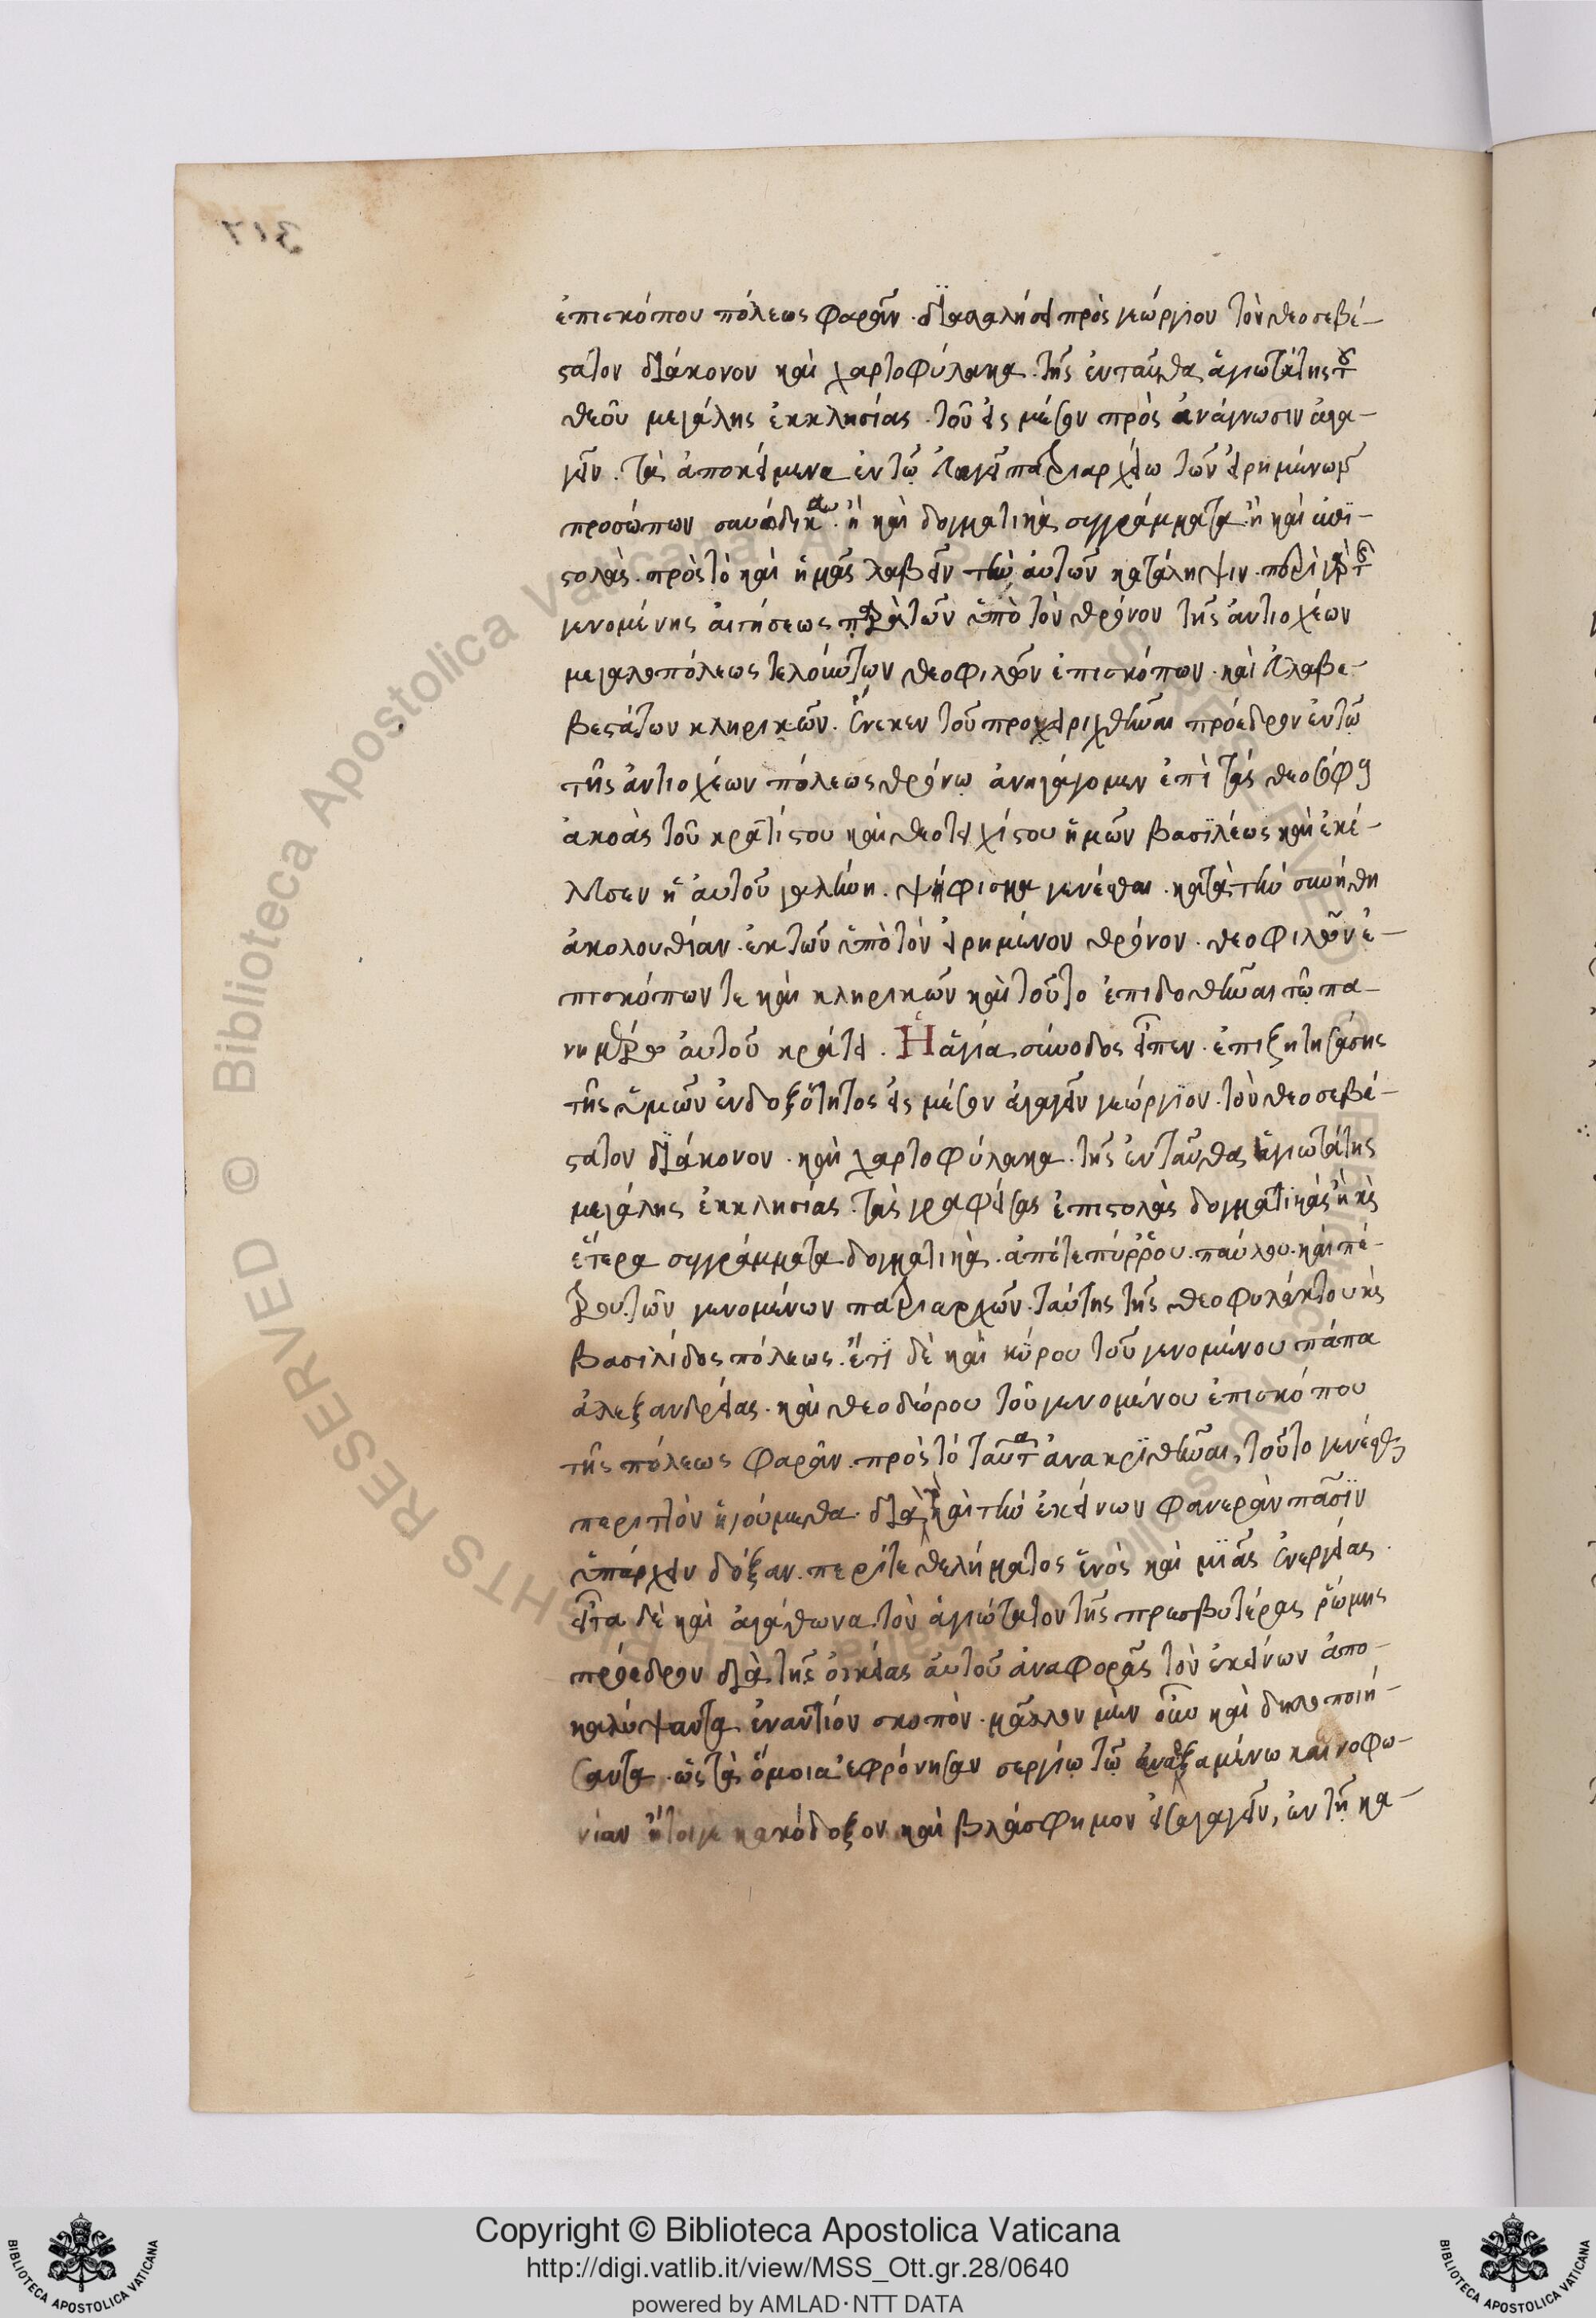 317
ἐπισκόπου πόλεως φαράν. διαλαλήσει πρὸς γεώργιον τὸν θεοσεβέ-
στατον διάκονον καὶ χαρτοφύλακα. τῆς ἐνταῦθα ἁγιωτάτης τοῦ
θεοῦ μεγάλης ἐκκλησίας. τοῦ εἰς μέσον πρὸς ἀνάγνωσιν ἀγα-
γεῖν. τὰ ἀποκείμενα ἐν τῷ εὐαγεῖ πατριαρχείω τῶν εἰρημένων
προσώπων συνοδικὰ. ἢ καὶ δογματικὰ συγγράμματα. ἢ καὶ ἐπι-
στολὰς. πρὸς τὸ καὶ ἡμᾶς λαβεῖν τὴν αὐτῶν κατάληψιν. περὶ γὰρ τῆς
γενομένης αἰτήσεως παρὰ τῶν ὑπὸ τὸν θρόνον τῆς ἀντιοχέων
μεγαλοπόλεως τελούντων θεοφιλῶν ἐπισκόπων. καὶ εὐλαβε-
βεστάτων κληρικῶν. ἕνεκεν τοῦ προχειρισθῆναι πρόεδρον ἐν τῷ
τῆς ἀντιοχέων πόλεως θρόνῳ ἀνηγάγομεν ἐπὶ τὰς θεοσόφους
ἀκοὰς τοῦ κρατίστου καὶ θεοτειχίστου ἡμῶν βασιλέως καὶ ἐκέ-
λευσεν ἡ αὐτοῦ γαλήνη. ψήφισμα γενέσθαι. κατὰ τὴν συνήθη
ἀκολουθίαν. ἐκ τῶν ὑπὸ τὸν εἰρημένον θρόνον. θεοφιλῶν ἐ-
πισκόπων τε καὶ κληρικῶν καὶ τοῦτο ἐπιδοθῆναι τῷ πα-
νημέρῳ αὐτοῦ κράτει. Ἡ ἁγία σύνοδος εἶπεν. ἐπιζητησάσης
τῆς ὑμῶν ἐνδοξότητος εἰς μέσον ἀγαγεῖν γεώργιον. τὸν θεοσεβέ-
στατον διάκονον. καὶ χαρτοφύλακα. τῆς ἐνταῦθα ἁγιωτάτης
μεγάλης ἐκκλησίας. τὰς γραφείσας ἐπιστολὰς δογματικάς. ἢ καὶ
ἕτερα συγγράμματα δογματικὰ. ἀπό τε πύρρου. παύλου. καὶ πέ-
τρου. τῶν γενομένων πατριαρχῶν. ταύτης τῆς θεοφυλάκτου καὶ
βασιλίδος πόλεως. ἔτι δὲ καὶ κύρου τοῦ γενομένου πάπα
ἀλεξανδρείας. καὶ θεοδώρου τοῦ γενομένου ἐπισκόπου
τῆς πόλεως φαράν. πρὸς τὸ ταῦτα ἀνακριθῆναι, τοῦτο γενέσθαι
περιττὸν ἡγούμεθα. διὰ τὸ καὶ τὴν ἐκείνων φανερὰν πᾶσιν
ὑπάρχειν δόξαν. περί τε θελήματος ἑνὸς καὶ μιᾶς ἐνεργείας.
εἶτα δὲ καὶ ἀγάθωνα τὸν ἁγιώτατον τῆς πρεσβυτέρας ῥώμης
πρόεδρον διὰ τῆς οἰκείας αὐτοῦ ἀναφορᾶς τὸν ἐκείνων ἀπο-
καλύψαντα ἐναντίον σκοπὸν. μᾶλλον μὲν οὖν καὶ δηλοποιή-
σαντα. ὡς τὰ ὅμοια ἐφρόνησαν σεργίῳ τῷ ἐναρξαμένω καινοφω-
νίαν ἤτοιγε κακόδοξον καὶ βλάσφημον εἰσαγαγεῖν, ἐν τῇ κα-
Copyright © Biblioteca Apostolica Vaticana
http://digi.vatlib.it/view/MSS_Ott.gr.28/0640
powered by AMLAD·NTT DATA